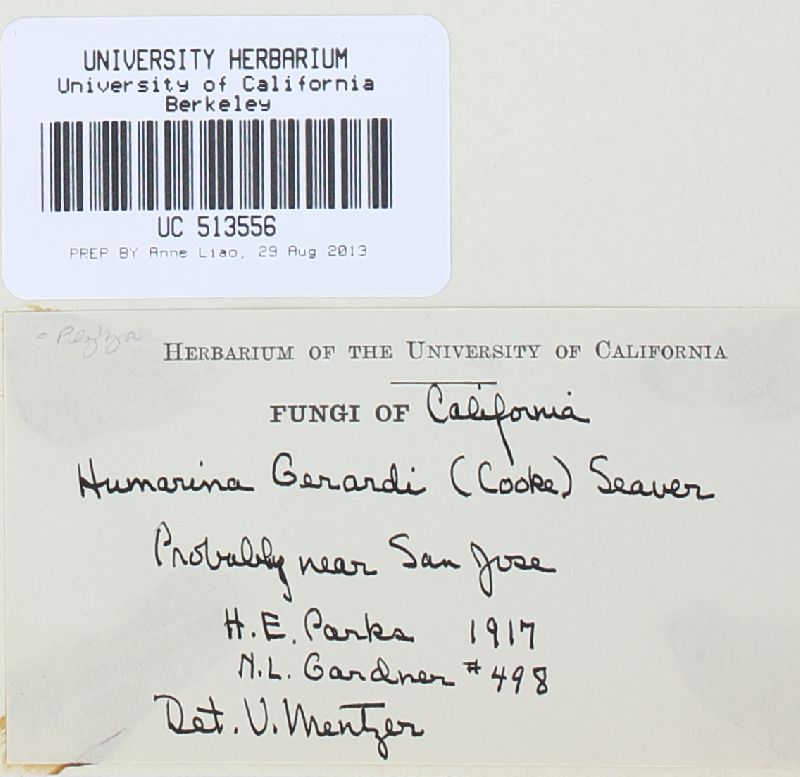 UNIVERSITY HERBARIUM
University of California
Berkeley
UC 513556
PREP BY Anne Liao, 29 Aug 2013
Peziza
HERBARIUM OF THE UNIVERSITY OF CALIFORNIA
FUNGI OF California
Humarina Gerardi (Cooke) Seaver
Probably near San Jose
H.E. Parks 1917
N.L. Gardner #498
Det. V. Mentzer